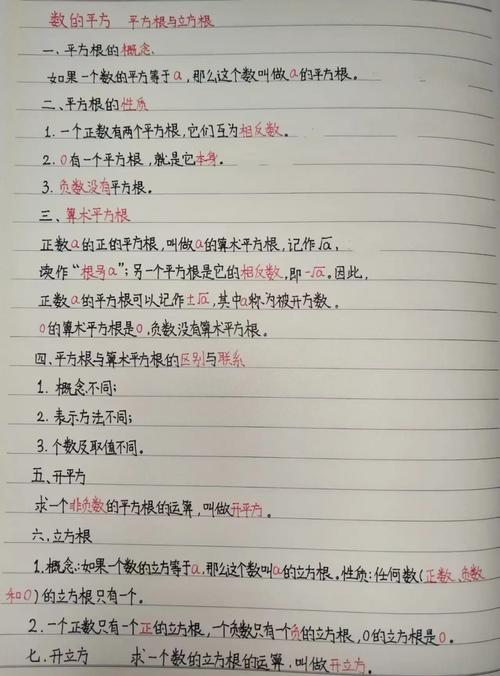 数的平方 平方根与立方根
一、平方根的概念、
如果一个数的平方等于a,那么这个数叫做a的平方根。
二、平方根的性质
1. 一个正数有两个平方根,它们互为相反数。
2. 0有一个平方根,就是它本身。
3. 负数没有平方根。
三、算术平方根
正数a的正的平方根,叫做a的算术平方根,记作√a,
读作“根号a”;另一个平方根是它的相反数,即-√a。因此,
正数a的平方根可以记作±√a,其中a称为被开方数。
0的算术平方根是0,负数没有算术平方根。
四、平方根与算术平方根的区别与联系
1. 概念不同;
2. 表示方法不同;
3. 个数及取值不同。
五、开平方
求一个非负数的平方根的运算,叫做开平方。
六、立方根
1.概念:如果一个数的立方等于a,那么这个数叫a的立方根。性质:任何数(正数、负数
和0)的立方根只有一个。
2. 一个正数只有一个正的立方根,一个负数只有一个负的立方根,0的立方根是0。
七、开立方 求一个数的立方根的运算,叫做开立方。